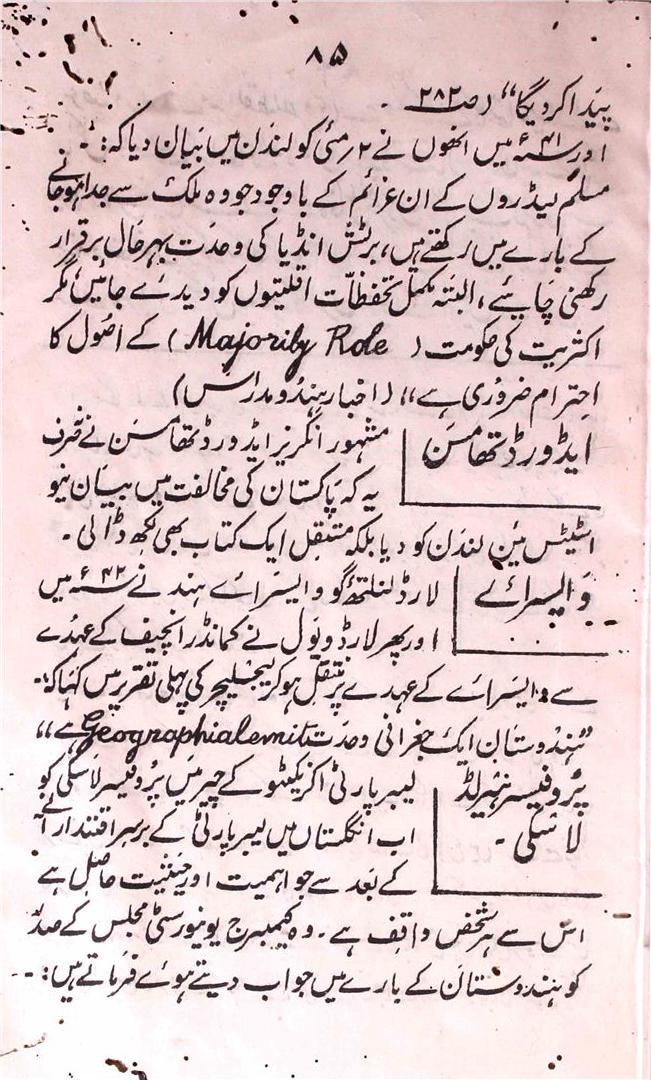 ۸۵
پیدا کر دیگا“ (صـ ۲۸۲ ۔
اور ۴۱ء میں انھوں نے ۲ مئی کو لندن میں بیان دیا کہ:۔
مسلم لیڈروں کے ان عزائم کے باوجود جو وہ ملک سے جدا ہوجانے
کے بارے میں رکھتے ہیں، برٹش انڈیا کی وحدت بہرحال برقرار
رکھنی چاہئے، البتہ مکمل تحفظات اقلیتوں کو دیدئے جائیں مگر
اکثریت کی حکومت (Majorily Role) کے اصول کا
احترام ضروری ہے“ (اخبار ہندو مدراس)
ایڈورڈ تھامسن
مشہور انگریز ایڈورڈ تھامسن نے صرف
یہ کہ پاکستان کی مخالفت میں بیان نیو
اسٹیٹس مین لندن کو دیا بلکہ مستقل ایک کتاب بھی لکھ ڈالی۔
وایسرائے
لارڈ لنلتھگو وایسرائے ہند نے ۴۲ء میں
اور پھر لارڈ ویول نے کمانڈر انچیف کے عہدے
سے وایسرائے کے عہدے پر منتقل ہو کر لیجسلیچر کی پہلی تقریر میں کہا کہ:۔
”ہندوستان ایک جغرافی وحدت Geographialemit ہے“
پروفیسر ہیرلڈ لاسکی۔
لیبر پارٹی اکزیکٹو کے چیرمین پروفیسر لاسکی کو
اب انگلستاں میں لیبر پارٹی کے برسر اقتدار آنے
کے بعد سے جو اہمیت اور حیثیت حاصل ہے
اس سے ہر شخص واقف ہے۔ وہ کیمبرج یونیورسٹی مجلس کے صدر
کو ہندوستان کے بارے میں جواب دیتے ہوئے فرماتے ہیں:۔